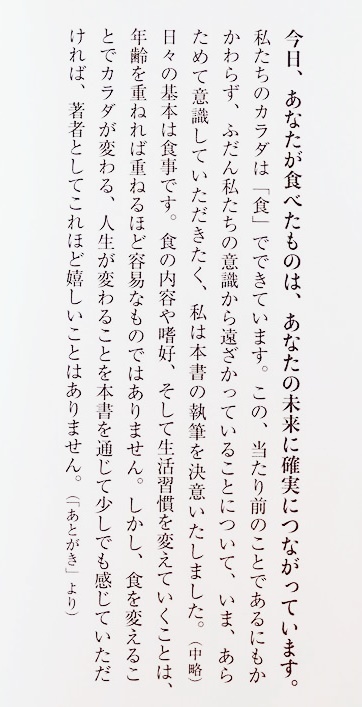 今日、あなたが食べたものは、あなたの未来に確実につながっています。
私たちのカラダは「食」でできています。この、当たり前のことであるにもか
かわらず、ふだん私たちの意識から遠ざかっていることについて、いま、あら
ためて意識していただきたく、私は本書の執筆を決意いたしました。（中略）
日々の基本は食事です。食の内容や嗜好、そして生活習慣を変えていくことは、
年齢を重ねれば重ねるほど容易なものではありません。しかし、食を変えるこ
とでカラダが変わる、人生が変わることを本書を通じて少しでも感じていただ
ければ、著者としてこれほど嬉しいことはありません。（「あとがき」より）